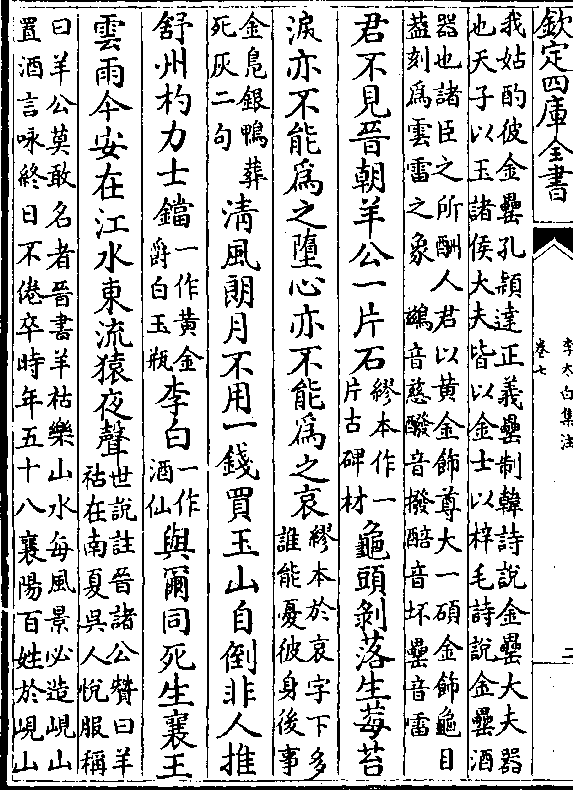 欽定四庫全書
李太白集注
卷七
二
我姑酌彼金罍孔穎達正義罍制韓詩說金罍大夫器
也天子以玉諸侯大夫皆以金士以梓毛詩說金罍酒
器也諸臣之所酬人君以黄金飾尊大一碩金飾龜目
葢刻為雲雷之象 鷀音慈醱音撥醅音坏罍音雷
君不見晉朝羊公一片石繆本作一片古碑材龜頭剝落生莓苔
淚亦不能為之墮心亦不能為之哀繆本於哀字下多誰能憂彼身後事
金鳧銀鴨葬死灰二句清風朗月不用一錢買玉山自倒非人推
舒州杓力士鐺一作黄金爵白玉瓶李白一作酒仙與爾同死生襄王
雲雨今安在江水東流猿夜聲世說註晉諸公贊曰羊祜在南夏吳人悅服稱
曰羊公莫敢名者晉書羊祜樂山水每風景必造峴山
置酒言咏終日不倦卒時年五十八襄陽百姓於峴山